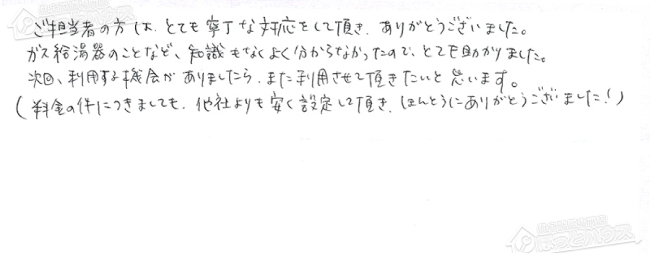 ご担当者の方は、とても寧丁な対応をして頂き、ありがとうございました。
ガス給湯器のことなど、知識もなくよく分からなかったので、とても助かりました。
次回、利用する機会がありましたら、また利用させて頂きたいと思います。
(料金の件につきましても、他社よりも安く設定して頂き、ほんとうにありがとうございました!)